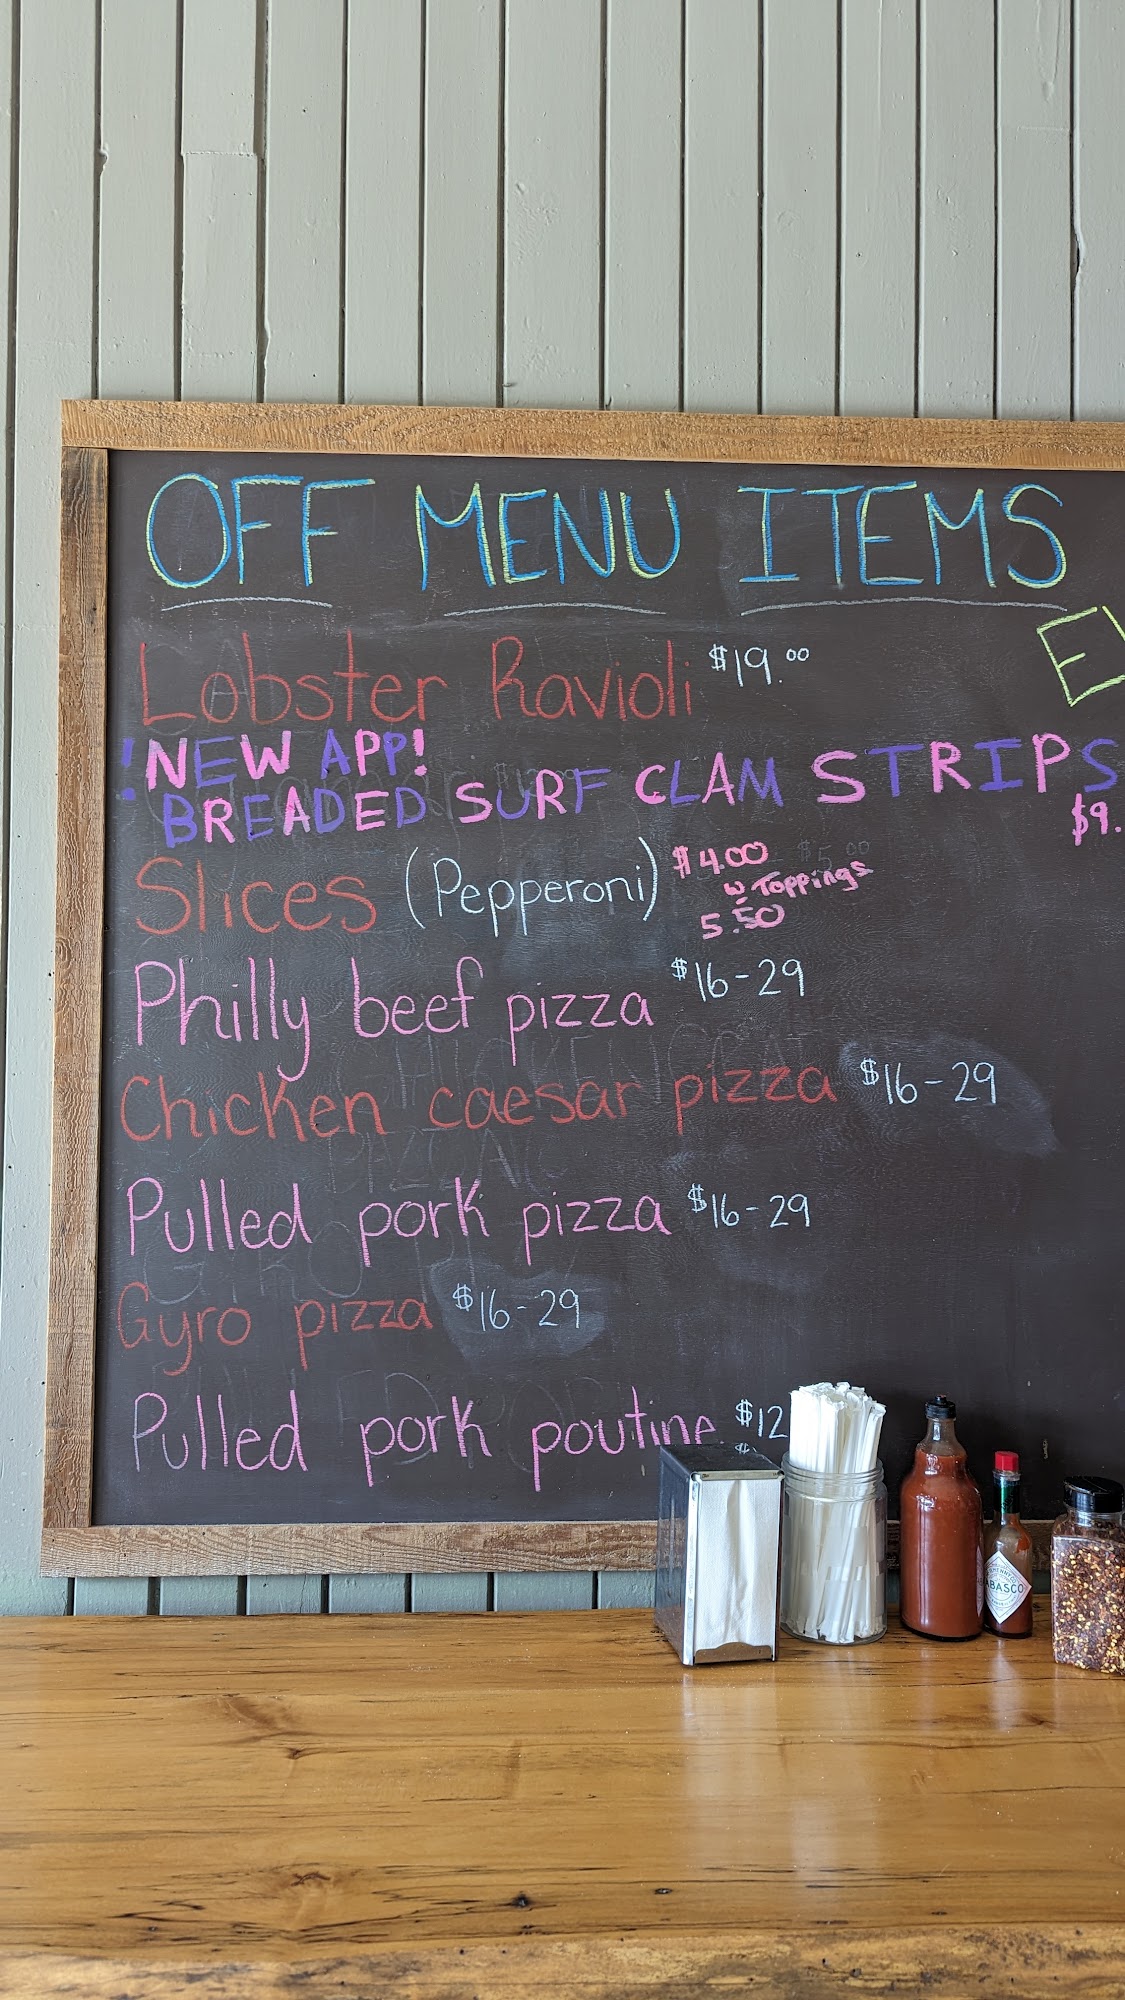 OFF MENU ITEMS
Lobster Ravioli $19.00
!NEW APP!
BREADED SURF CLAM STRIPS
$9.
Slices (Pepperoni) $4.00
w Toppings
5.50
Philly beef pizza $16-29
Chicken caesar pizza $16-29
Pulled pork pizza $16-29
Gyro pizza $16-29
Pulled pork poutine $12
TABASCO